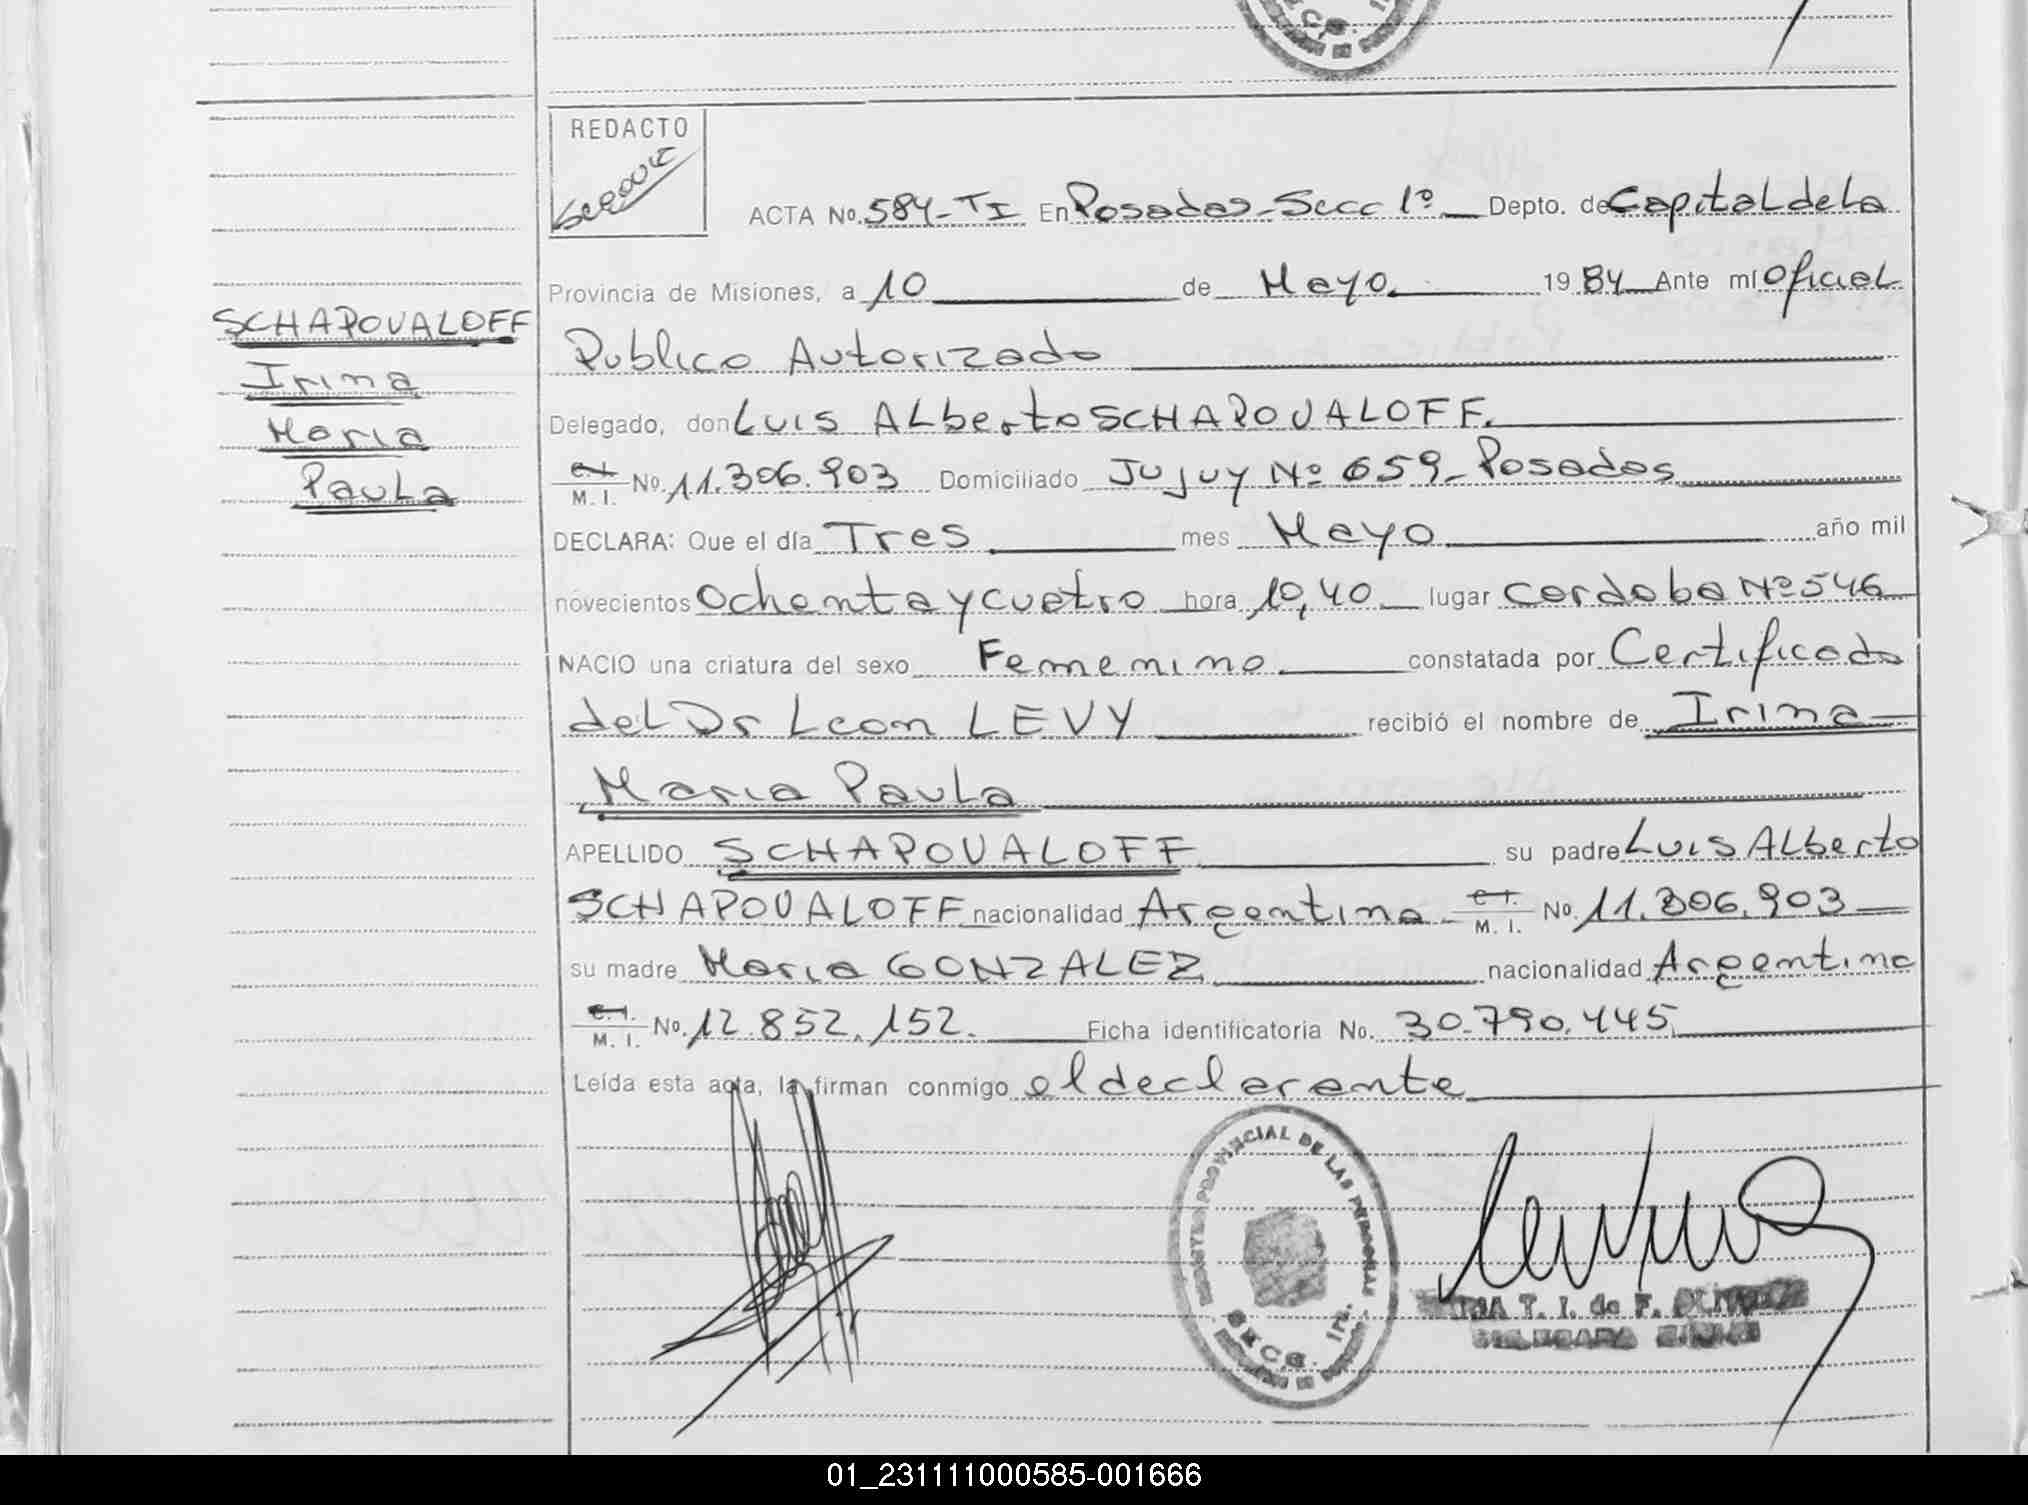 REDACTO
ACTA No. 584-TI En Posadas-Secc 1º Depto. de Capital de la
Provincia de Misiones, a 10 de Mayo 1984 Ante mí Oficial
Publico Autorizado
Delegado, don Luis ALberto SCHAPOVALOFF.
C.I. M.I. No. 11.306.903 Domiciliado Jujuy Nº 659-Posadas
DECLARA: Que el día Tres mes Mayo año mil
novecientos Ochenta y cuatro hora 10,40 lugar cordoba Nº 546
NACIO una criatura del sexo Femenino constatada por Certificado
del Dr Leon LEVY recibió el nombre de Irina
Maria Paula
APELLIDO SCHAPOVALOFF su padre Luis ALberto
SCHAPOVALOFF nacionalidad Argentina C.I. M.I. No. 11.306.903
su madre Maria GONZALEZ nacionalidad Argentina
C.I. M.I. No. 12.852.152. Ficha identificatoria No. 30.790.445
Leída esta acta, la firman conmigo el declarante
SCHAPOVALOFF
Irina
Maria
Paula
REGISTRO PROVINCIAL DE LAS PERSONAS
T. I. de F.
01_231111000585-001666